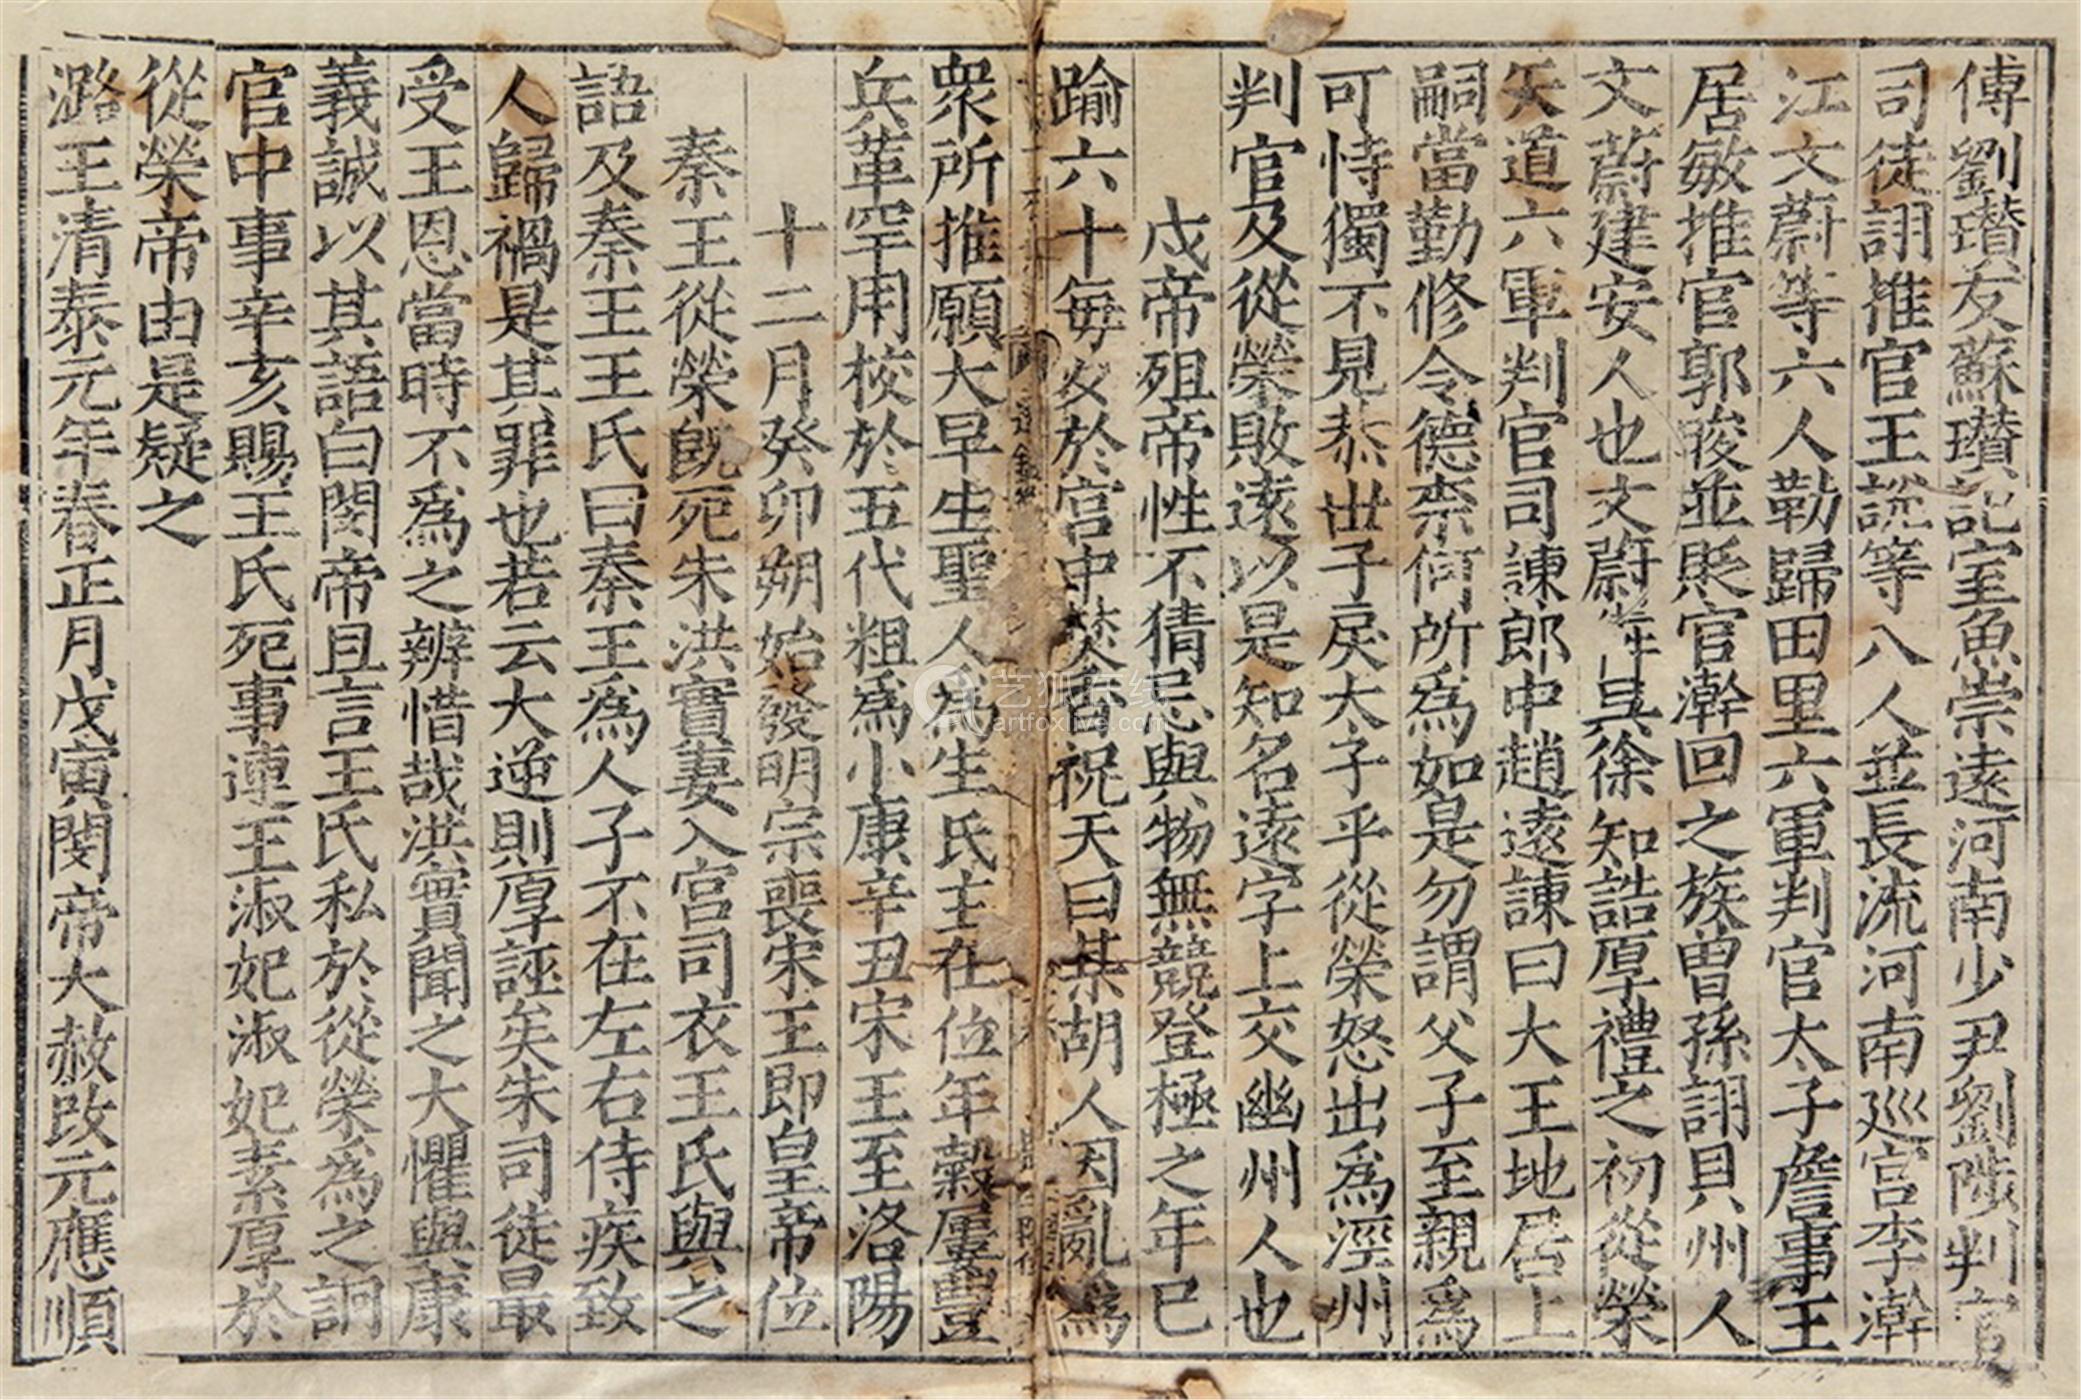 傅劉瓚友蘇瓚記室魚崇遠河南少尹劉陟判官
司徒詡推官王説等八人並長流河南巡官李澣
江文蔚等六人勒歸田里六軍判官太子詹事王
居敏推官郭晙並貶官澣回之族曾孫詡貝州人
文蔚建安人也文蔚奔吳徐知誥厚禮之初從榮
失道六軍判官司諫郎中趙遠諫曰大王地居上
嗣當勤修令德柰何所爲如是勿謂父子至親爲
可恃獨不見恭世子戾太子乎從榮怒出爲涇州
判官及從榮敗遠以是知名遠字上交幽州人也
戊帝殂帝性不猜忌與物無競登極之年已
踰六十每夜於宮中焚香祝天曰某胡人因亂爲
衆所推願天早生聖人爲生民主在位年穀屢豐
兵革罕用校於五代粗爲小康辛丑宋王至洛陽
十二月癸卯朔始發明宗喪宋王即皇帝位
秦王從榮旣死朱洪實妻入宮司衣王氏與之
語及秦王王氏曰秦王爲人子不在左右侍疾致
人歸禍是其罪也若云大逆則厚誣矣朱司徒最
受王恩當時不爲之辨惜哉洪實聞之大懼與康
義誠以其語白閔帝且言王氏私於從榮爲之詗
宫中事辛亥賜王氏死事連王淑妃淑妃素厚於
從榮帝由是疑之
潞王清泰元年春正月戊寅閔帝大赦改元應順
艺狐在线
artfoxlive.com